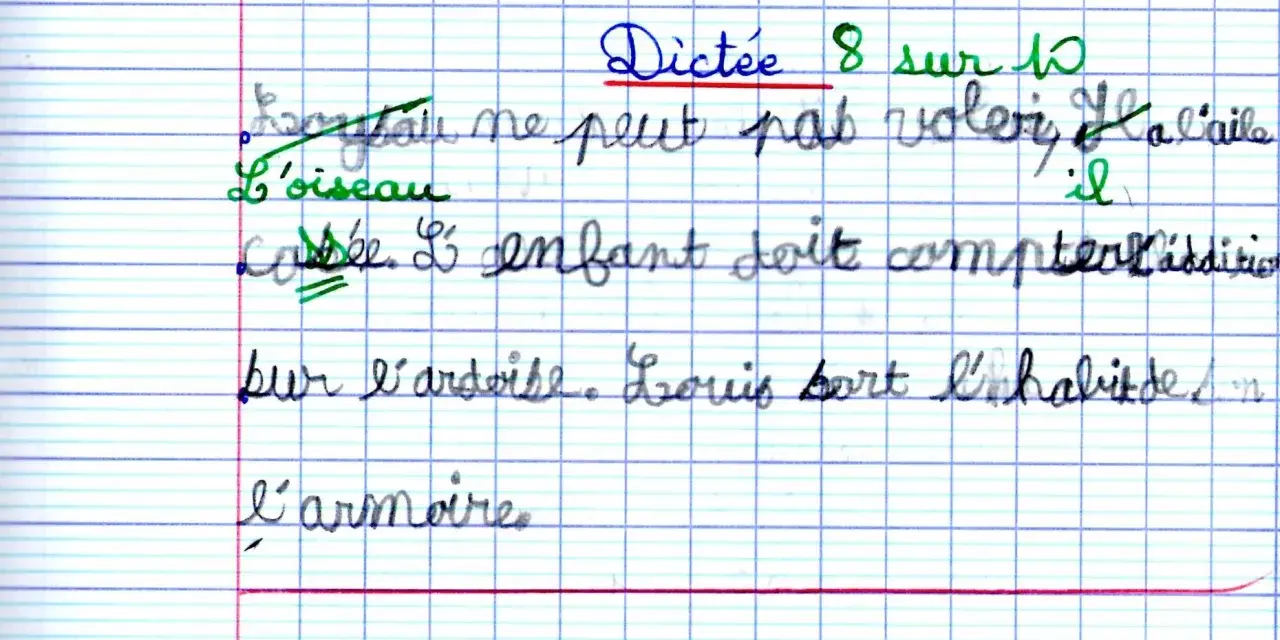 Dictée 8 sur 10
ne peut pas voler, Il a l'aile
L'oiseau il
cassée. L'enfant doit compter l'addition
sur l'ardoise. Louis sort l'habit de
l'armoire.